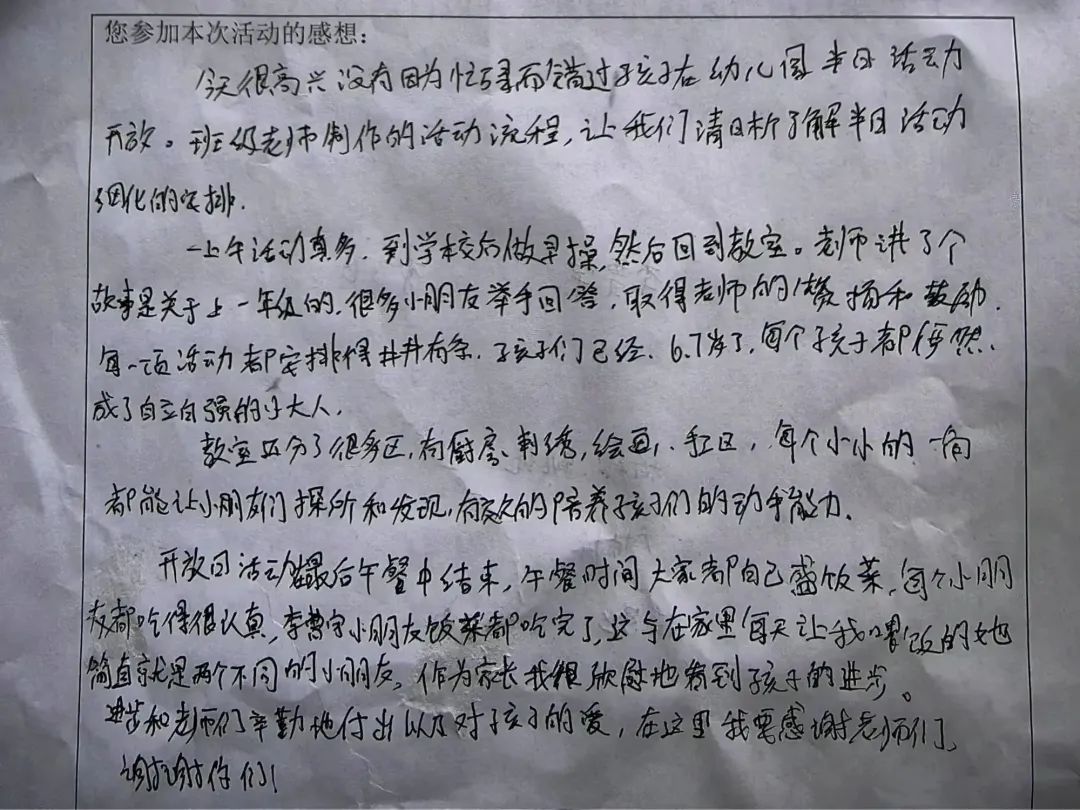 您参加本次活动的感想:
今天很高兴没有因为忙碌而错过孩子在幼儿园半日活动
开放。班级老师制作的活动流程,让我们清晰了解半日活动
细化的安排.
一上午活动真多.到学校后做早操,然后回到教室。老师讲了个
故事是关于上一年级的.很多小朋友举手回答.取得老师的表扬和鼓励.
每一项活动都安排得井井有条.孩子们已经.6.7岁了,每个孩子都俨然.
成了自立自强的小大人.
教室还分了很多区,有厨房、刺绣,绘画,手工区,每个小小的一角
都能让小朋友们探所和发现,有效的培养孩子们的动手能力.
开放日活动在最后午餐中结束,午餐时间大家都自己盛饭菜,每个小朋
友都吃得很认真,李宁小朋友饭菜都吃完了,这与在家里每天让我喂饭的她
简直就是两个不同的小朋友。作为家长我很欣慰地看到孩子的进步。
进步和老师们辛勤地付出以及对孩子的爱,在这里我要感谢老师们,
谢谢你们!